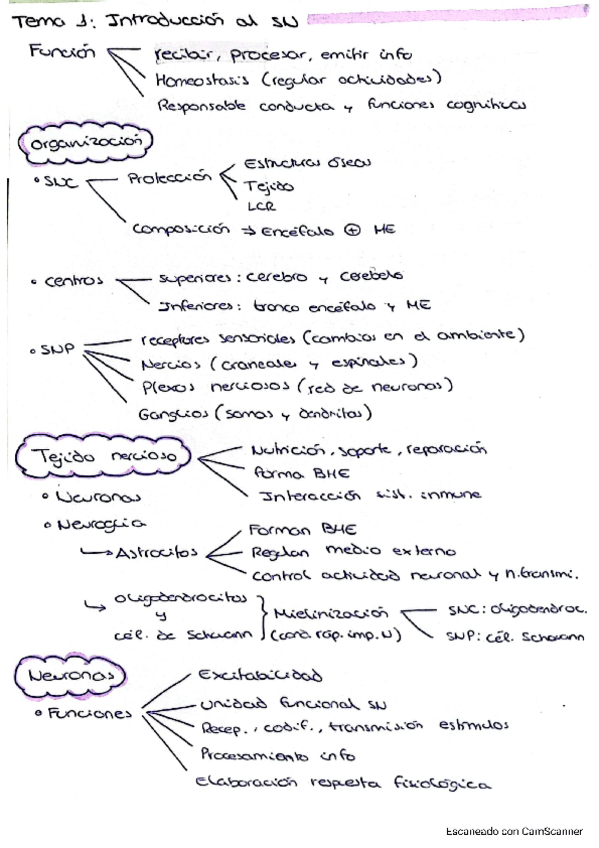 Tema 1: Introducción al SN
Función
recibir, procesar, emitir info
Homeostasis (regular actividades)
Responsable conducta y funciones cognitivas
Organización
• SNC
Protección
Estructuras óseas
Tejido
LCR
Composición ⇒ Encéfalo ⊕ ME
• Centros
Superiores: cerebro y cerebelo
Inferiores: tronco encéfalo y ME
• SNP
receptores sensoriales (cambios en el ambiente)
Nervios (craneales y espinales)
Plexos nerviosos (red de neuronas)
Ganglios (somas y dendritas)
Tejido nervioso
Nutrición, soporte, reparación
Forma BHE
Interacción sist. inmune
• Neuronas
• Neuroglia
→ Astrocitos
Forman BHE
Regulan medio externo
Control actividad neuronal y n.transmi.
→ Oligodendrocitos
y
cél. de Schwann
Mielinización
(cond. ráp. imp. N)
SNC: oligodendroc.
SNP: cél. Schwann
Neuronas
• Funciones
Excitabilidad
Unidad funcional SN
Recep., codif., transmisión estímulos
Procesamiento info
Elaboración respuesta fisiológica
Escaneado con CamScanner